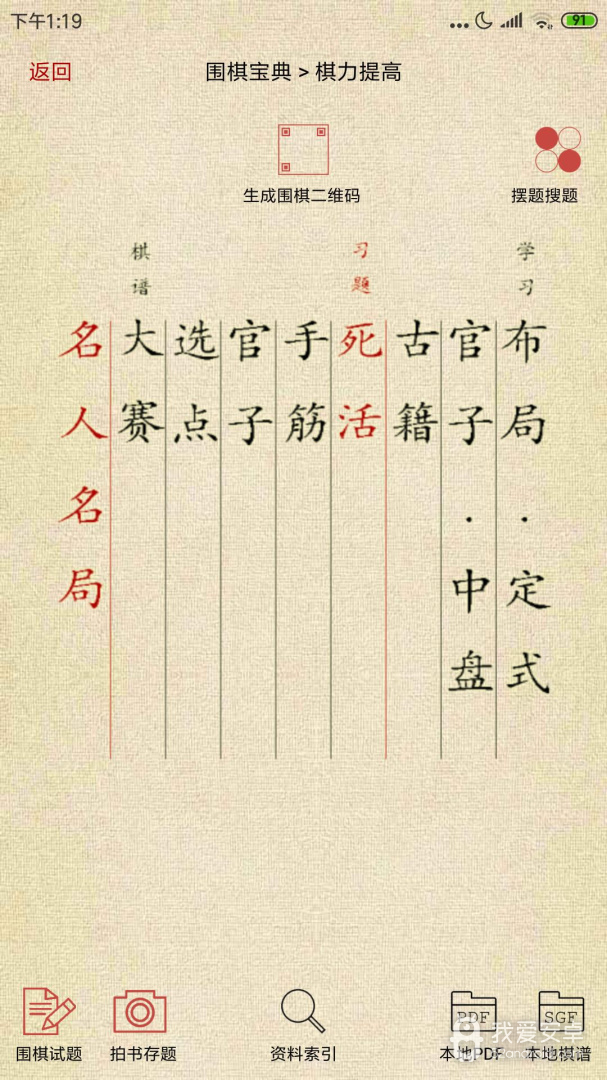 下午1:19
91
返回
围棋宝典 > 棋力提高
生成围棋二维码
摆题搜题
学习
布局·定式
官子·中盘
古籍
习题
死活
手筋
官子
选点
棋谱
大赛
名人名局
围棋试题
拍书存题
资料索引
PDF
本地PDF
SGF
本地棋谱
我爱安卓